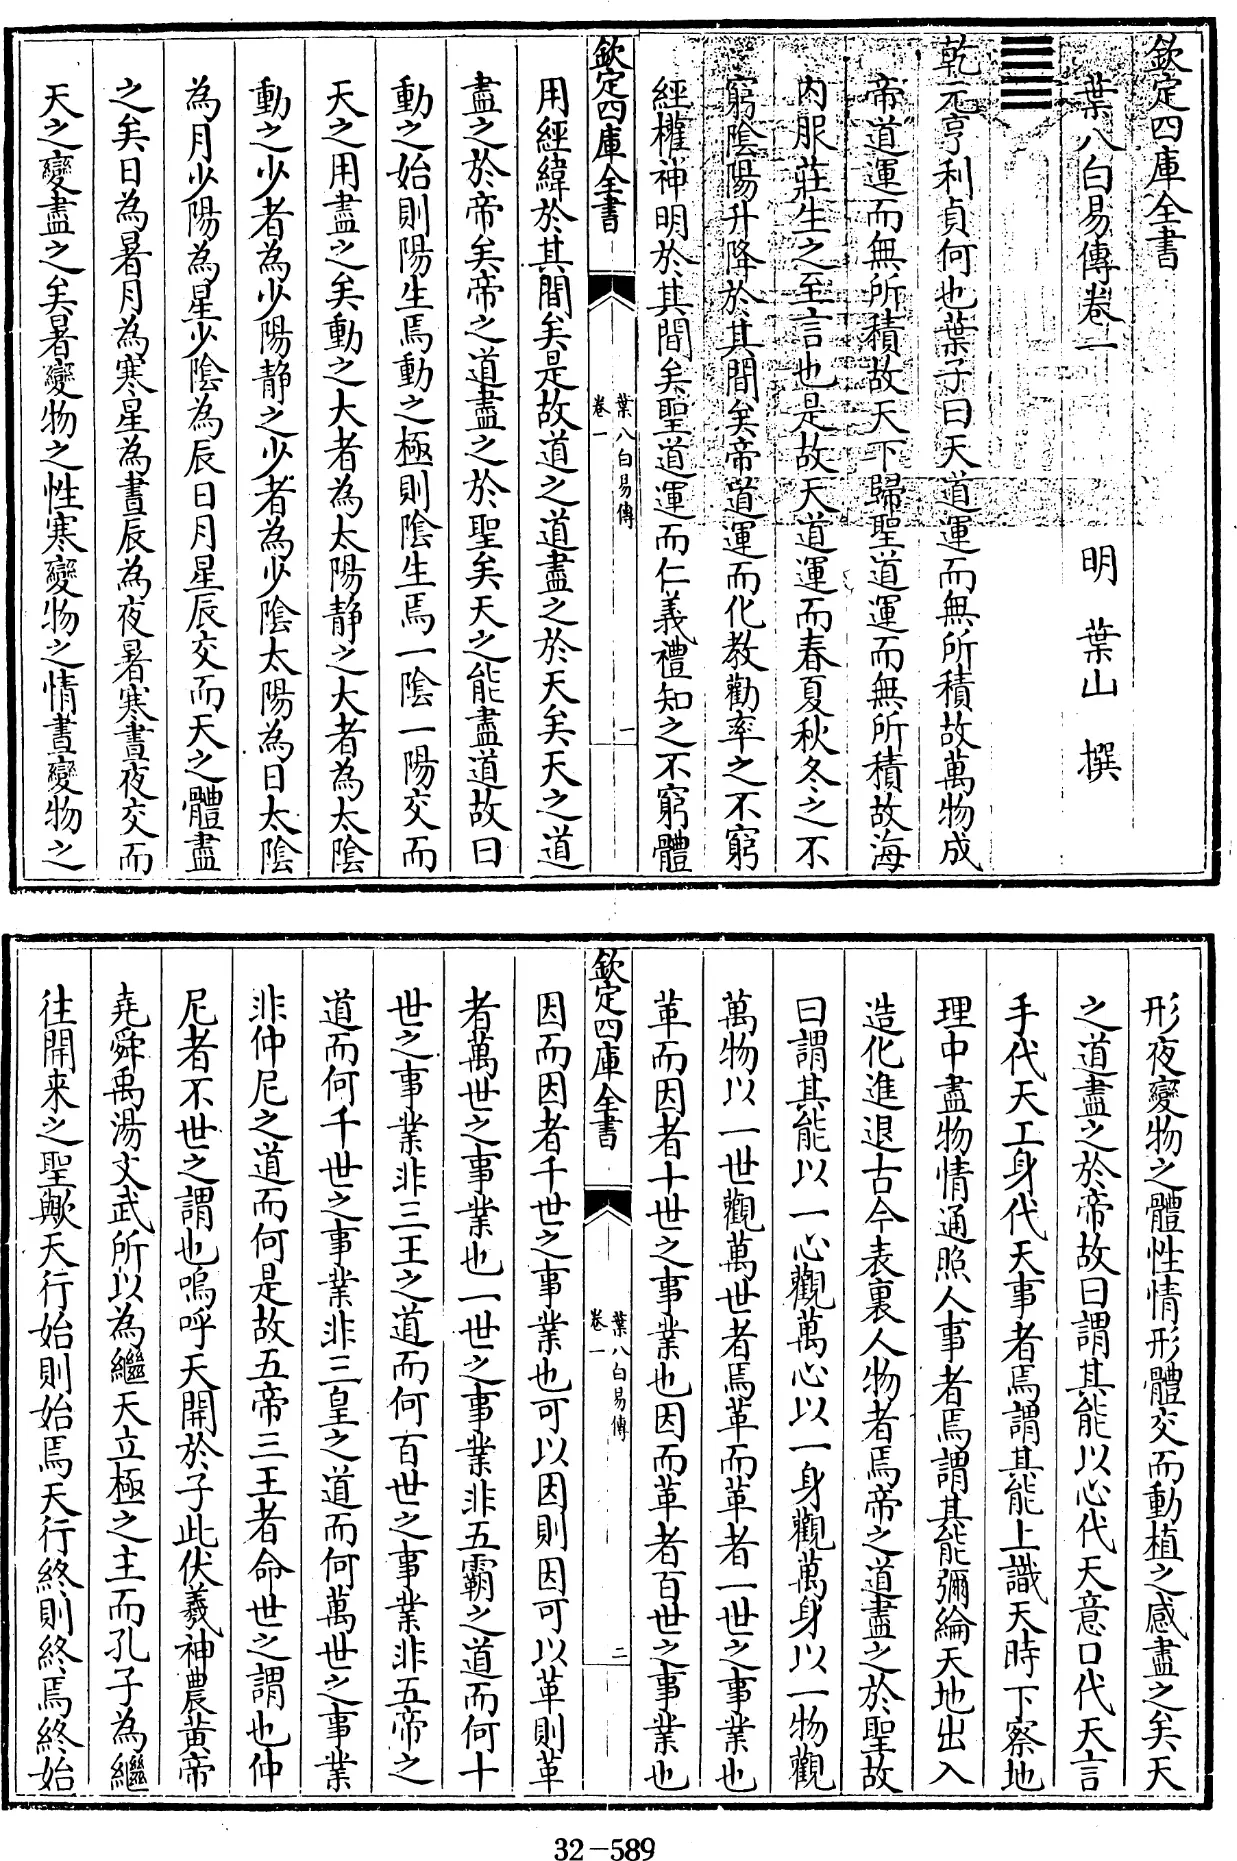 欽定四庫全書
葉八白易傳卷一
明 葉山 撰
乾元亨利貞何也葉子曰天道運而無所積故萬物成
帝道運而無所積故天下歸聖道運而無所積故海
内服莊生之至言也是故天道運而春夏秋冬之不
窮陰陽升降於其間矣帝道運而化教勸率之不窮
經權神明於其間矣聖道運而仁義禮知之不窮體
欽定四庫全書
葉八白易傳
卷一
一
用經緯於其間矣是故道之道盡之於天矣天之道
盡之於帝矣帝之道盡之於聖矣天之能盡道故曰
動之始則陽生焉動之極則陰生焉一陰一陽交而
天之用盡之矣動之大者為太陽静之大者為太陰
動之少者為少陽静之少者為少陰太陽為日太陰
為月少陽為星少陰為辰日月星辰交而天之體盡
之矣日為暑月為寒星為晝辰為夜暑寒晝夜交而
天之變盡之矣暑變物之性寒變物之情晝變物之
形夜變物之體性情形體交而動植之感盡之矣天
之道盡之於帝故曰謂其能以心代天意口代天言
手代天工身代天事者焉謂其能上識天時下察地
理中盡物情通照人事者焉謂其能彌綸天地出入
造化進退古今表裏人物者焉帝之道盡之於聖故
曰謂其能以一心觀萬心以一身觀萬身以一物觀
萬物以一世觀萬世者焉革而革者一世之事業也
革而因者十世之事業也因而革者百世之事業也
欽定四庫全書
葉八白易傳
卷一
二
因而因者千世之事業也可以因則因可以革則革
者萬世之事業也一世之事業非五霸之道而何十
世之事業非三王之道而何百世之事業非五帝之
道而何千世之事業非三皇之道而何萬世之事業
非仲尼之道而何是故五帝三王者命世之謂也仲
尼者不世之謂也嗚呼天開於子此伏羲神農黄帝
堯舜禹湯文武所以為繼天立極之主而孔子為繼
往開来之聖歟天行始則始焉天行終則終焉終始
32-589